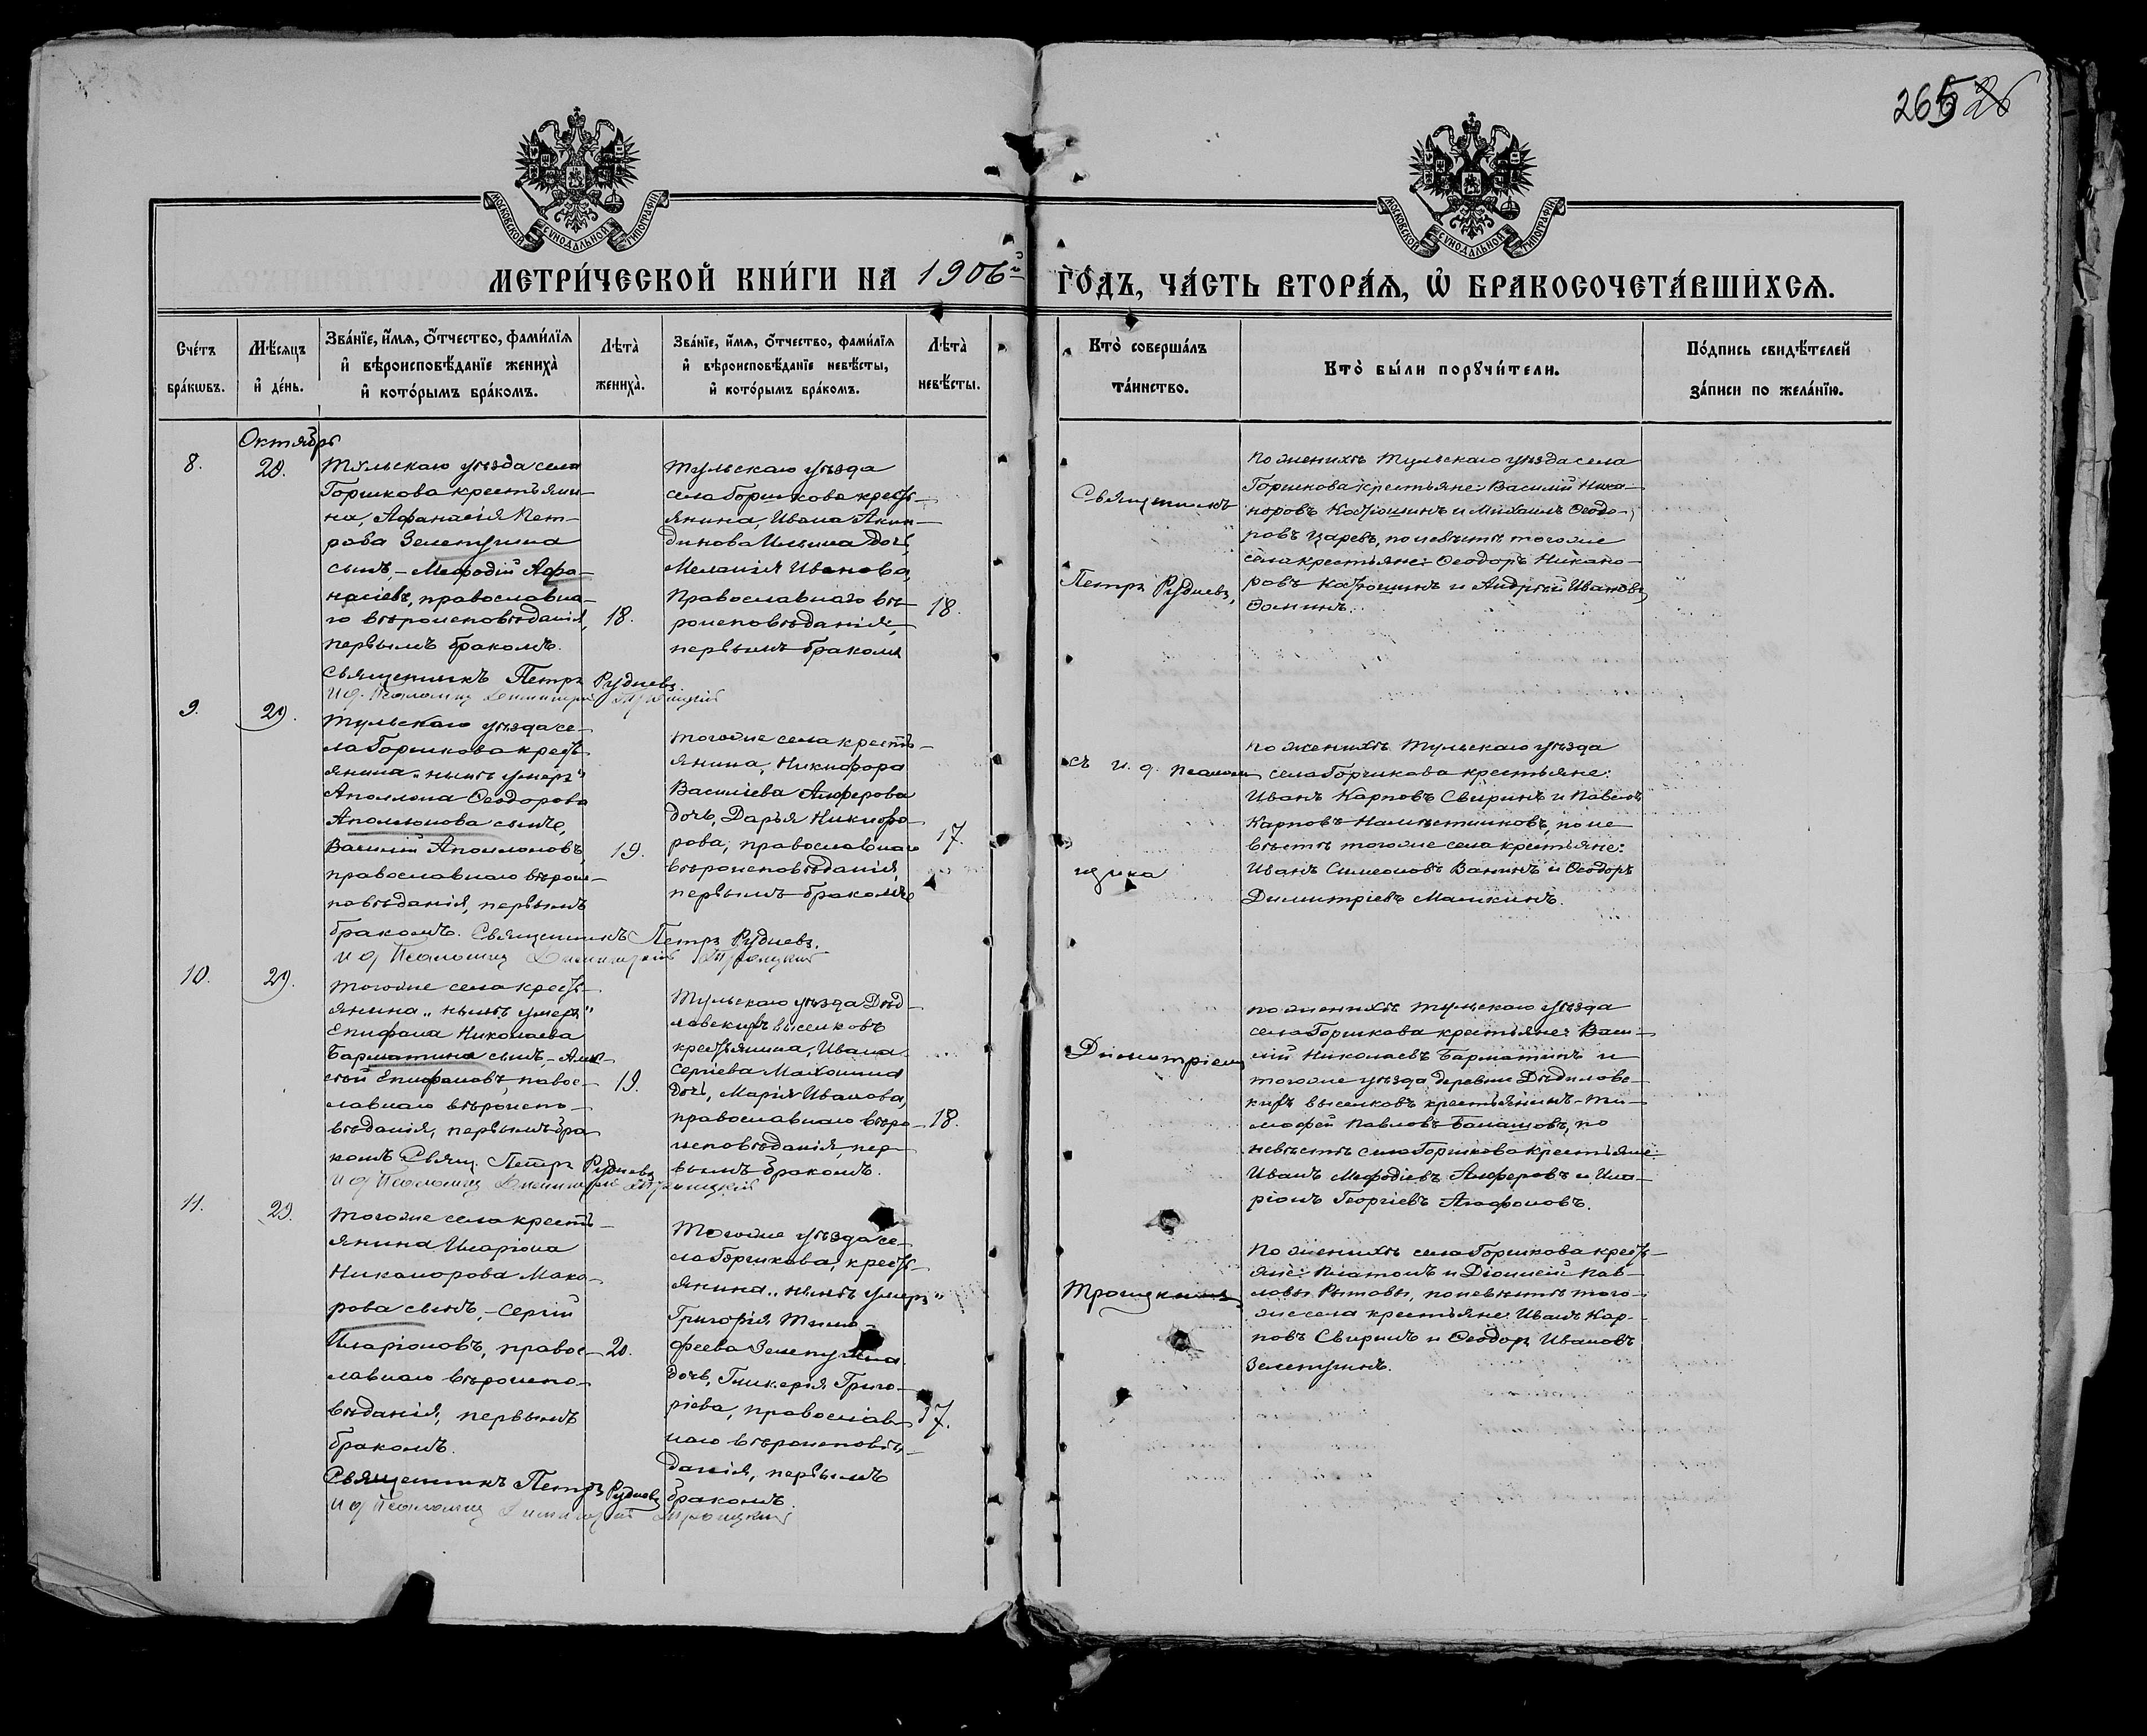 265 26
МОСКОВСКОЙ СѴНОДАЛЬНОЙ ТИПОГРАФІИ
МОСКОВСКОЙ СѴНОДАЛЬНОЙ ТИПОГРАФІИ
МЕТРИ́ЧЕСКОЙ КНИ́ГИ НА 1906й ГО́ДЪ, ЧА́СТЬ ВТОРА́Ѧ, Ѽ БРАКОСОЧЕТА́ВШИХСѦ.
Сче́тъ
бра́кѡвъ.
Мѣ́сяцъ
и҆ де́нь.
Зва́нїе, и҆́мѧ, ѻ҆́тчество, фами́лїѧ
и҆ вѣроисповѣ́данїе жениха̀
и҆ кото́рымъ бра́комъ.
Лѣта̀
жениха̀.
Зва́нїе, и҆́мѧ, ѻ҆́тчество, фами́лїѧ
и҆ вѣроисповѣ́данїе невѣ́сты,
и҆ кото́рымъ бра́комъ.
Лѣта̀
невѣ́сты.
Кто̀ соверша́лъ
та́инство.
Кто̀ бы́ли порꙋчи́тели.
По́дпись свидѣ́телей
за́писи по жела́нїю.
8.
Октябрь
20.
Тульскаго уѣзда села
Горшкова крестьяни-
на, Афанасія Пет-
рова Зелепугина
сынъ, - Меѳодій Афа-
насіевъ, православна-
го вѣроисповѣданія,
первымъ бракомъ.
18.
Тульскаго уѣзда
села Горшкова кресть-
янина, Ивана Акин-
динова Ильина дочь,
Меланія Иванова,
Православнаго вѣ-
роисповѣданія,
первымъ бракомъ
18.
Священникъ Петръ Рудневъ
И д. Псаломщ Димитрій Троицкій
Священникъ
Петръ Рудневъ,
По женихѣ Тульскаго уѣзда села
Горшкова крестьяне: Василій Ника-
норовъ и Михаилъ Ѳеодо-
ровъ Царевъ, по невѣстѣ тогоже
села крестьяне: Ѳеодоръ Никано-
ровъ и Андрей Ивановъ
Ѳоминъ.
9.
29.
Тульскаго уѣзда се-
ла Горшкова кресть
янина „нынѣ умеръ"
Аполлона Ѳеодорова
Аполлонова сынъ,
Василій Аполлоновъ,
православнаго вѣроис-
повѣданія, первымъ
бракомъ. Священникъ Петръ Рудневъ.
И д Псаломщ Димитрій Троицкій
19.
тогоже села кресть-
янина, Никифора
Василіева Алферова
дочь, Дарья Никифо-
рова, православнаго
вѣроисповѣданія,
первымъ бракомъ
17.
съ и. д. псалом
щика
По женихѣ Тульскаго уѣзда
села Горшкова крестьяне:
Иванъ Карповъ Свиринъ и Павелъ
Карповъ Намѣстниковъ, по не
вѣстѣ тогоже села крестьяне:
Иванъ Симеоновъ Ванинъ и Ѳеодоръ
Димитріевъ Маликинъ.
10.
29.
тогоже села кресть-
янина „нынѣ умеръ"
Епифана Николаева
Барматина сынъ, - Алек-
сѣй Епифановъ, павос-
лавнаго вѣроиспо-
вѣданія, первымъ бра
комъ Свящ. Петръ Рудневъ
И д Псаломщ Димитрій Троицкій
19.
Тульскаго уѣзда Дѣд-
ловскихъ выселковъ
крестьянина, Ивана
Сергіева Махонина
дочь, Марія Иванова,
православнаго вѣро-
исповѣданія, пер-
вымъ бракомъ.
18.
Димитріемъ
По женихѣ Тульскаго уѣзда
села Горшкова крестьяне: Васи-
лій Николаевъ Барматинъ и
тогоже уѣзда деревни Дѣдиловс-
кихъ выселковъ крестьянинъ - Ти-
моѳей Павловъ Балашовъ, по
невѣстѣ села Горшкова крестьяне:
Иванъ Меѳодіевъ Алферовъ и Ила-
ріонъ Георгіевъ Агафоновъ.
11.
29.
тогоже села кресть-
янина Иларіона
Никанорова Мака-
рова сынъ, - Сергій
Иларіоновъ, правос-
лавнаго вѣроиспо-
вѣданія, первымъ
бракомъ.
20.
Тогоже уѣзда се-
ла Горшкова, кресть-
янина „нынѣ умеръ"
Григорія Тимо-
феева Зелепугина
дочь, Гликерія Григо-
ріева, православ
наго вѣроисповѣ-
данія, первымъ
бракомъ.
17.
Священникъ Петръ Рудневъ
И д Псаломщ Димитрій Троицкій
Троицкимъ
По женихѣ села Горшкова кресть-
яне: Платонъ и Діонисій Пав-
ловы Рытовы, по невѣстѣ того-
же села крестьяне: Иванъ Кар-
повъ Свиринъ и Ѳеодоръ Ивановъ
Зелепугинъ.